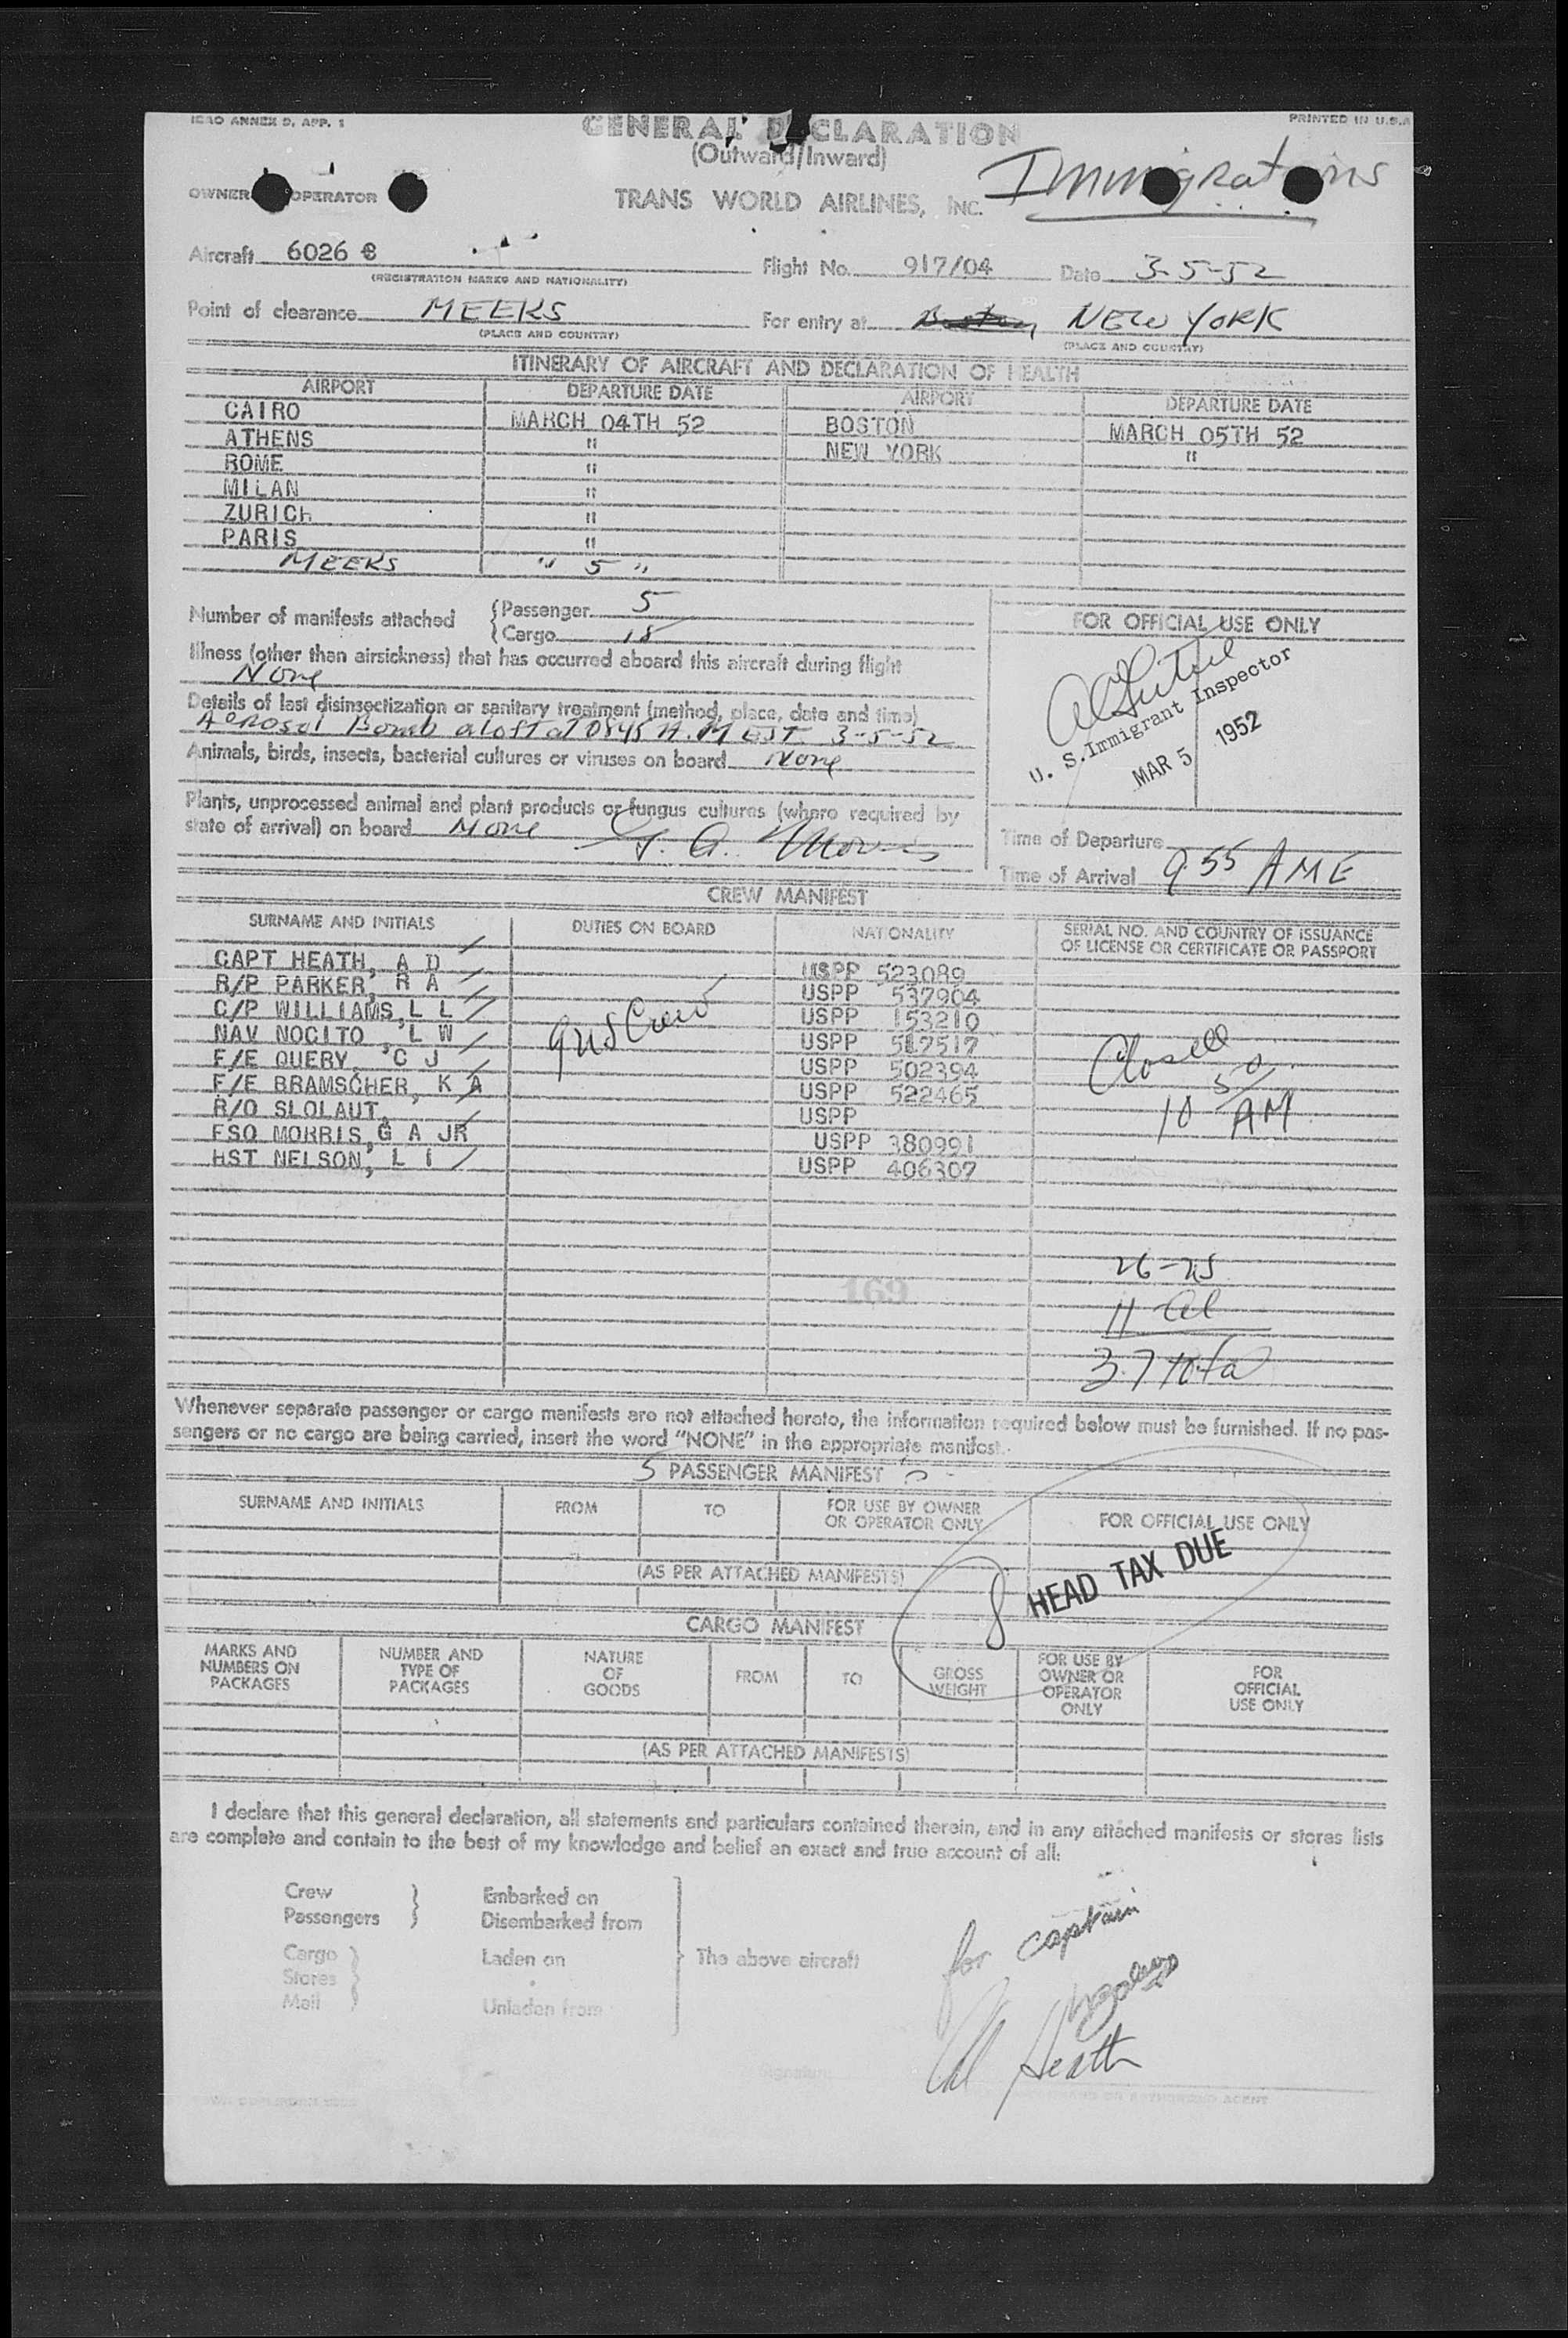 ICAO ANNEX 9, APP. 1
PRINTED IN U.S.A
GENERAL DECLARATION
(Outward/Inward)
Immigrations
OWNER OPERATOR
TRANS WORLD AIRLINES, INC.
Aircraft 6026 C Flight No. 917/04 Date 3-5-52
(REGISTRATION MARKS AND NATIONALITY)
Point of clearance MEEKS For entry at Boston NEW YORK
(PLACE AND COUNTRY) (PLACE AND COUNTRY)
ITINERARY OF AIRCRAFT AND DECLARATION OF HEALTH
AIRPORT DEPARTURE DATE AIRPORT DEPARTURE DATE
CAIRO MARCH 04TH 52 BOSTON MARCH 05TH 52
ATHENS " NEW YORK "
ROME "
MILAN "
ZURICH "
PARIS "
MEEKS " 5 "
Number of manifests attached { Passenger 5
{ Cargo 18
FOR OFFICIAL USE ONLY
Illness (other than airsickness) that has occurred aboard this aircraft during flight
None
U. S. Immigrant Inspector
MAR 5 1952
Details of last disinsectization or sanitary treatment (method, place, date and time)
Aerosol Bomb aloft at 0845 A.M EST. 3-5-52
Animals, birds, insects, bacterial cultures or viruses on board None
Plants, unprocessed animal and plant products or fungus cultures (where required by
state of arrival) on board None G. A. Morris
Time of Departure
Time of Arrival 9.55 AME
CREW MANIFEST
SURNAME AND INITIALS DUTIES ON BOARD NATIONALITY SERIAL NO. AND COUNTRY OF ISSUANCE
OF LICENSE OR CERTIFICATE OR PASSPORT
CAPT HEATH, A D USPP 523089
R/P PARKER, R A USPP 537904
C/P WILLIAMS, L L USPP 153210
NAV NOCITO , L W USPP 517517
F/E QUERY, C J USPP 502394
F/E BRAMSCHER, K A USPP 522465
R/O SLOLAUT, USPP
FSO MORRIS, G A JR USPP 380991
HST NELSON, L I USPP 406307
9 US Crew
Closed
10 50 AM
26-US
11 al
37 total
169
Whenever separate passenger or cargo manifests are not attached hereto, the information required below must be furnished. If no pas-
sengers or no cargo are being carried, insert the word "NONE" in the appropriate manifest.
5 PASSENGER MANIFEST
SURNAME AND INITIALS FROM TO FOR USE BY OWNER
OR OPERATOR ONLY FOR OFFICIAL USE ONLY
(AS PER ATTACHED MANIFESTS)
8 HEAD TAX DUE
CARGO MANIFEST
MARKS AND
NUMBERS ON
PACKAGES
NUMBER AND
TYPE OF
PACKAGES
NATURE
OF
GOODS
FROM
TO
GROSS
WEIGHT
FOR USE BY
OWNER OR
OPERATOR
ONLY
FOR
OFFICIAL
USE ONLY
(AS PER ATTACHED MANIFESTS)
I declare that this general declaration, all statements and particulars contained therein, and in any attached manifests or stores lists
are complete and contain to the best of my knowledge and belief an exact and true account of all:
Crew
Passengers
Embarked on
Disembarked from
Cargo
Stores
Mail
Laden on
Unladen from
The above aircraft
for captain
Heath
Signature
OR AUTHORIZED AGENT